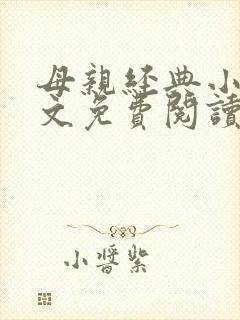 母親經典小
文免費閱讀
小醬紫